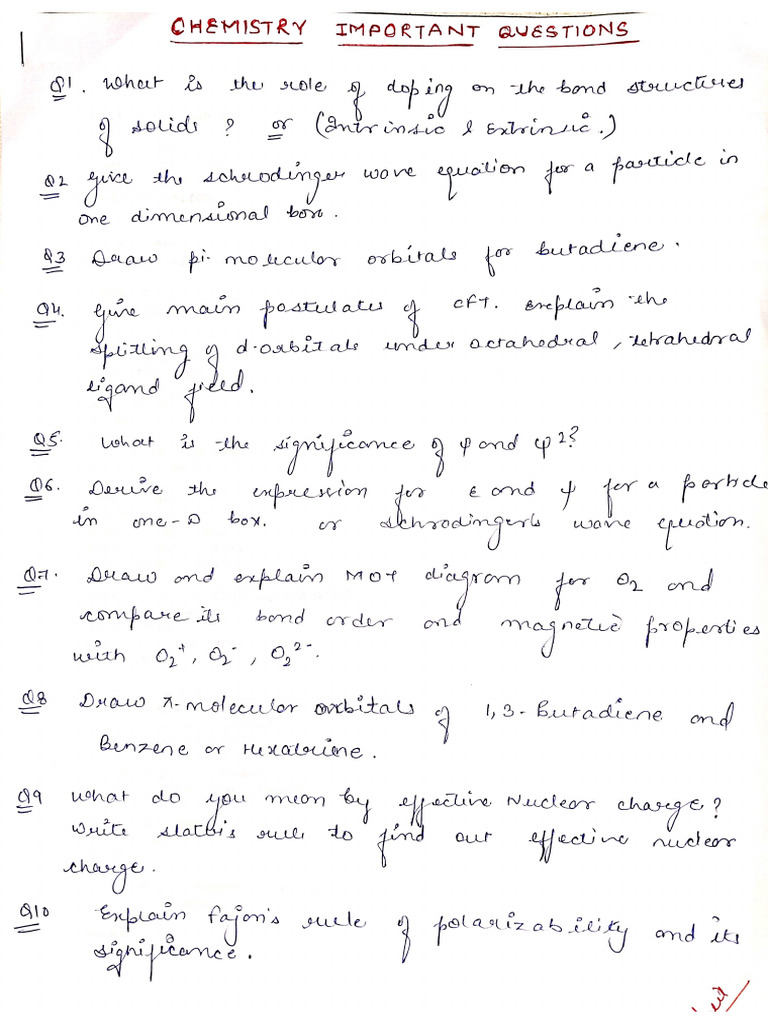 CHEMISTRY IMPORTANT QUESTIONS
Q1. What is the role of doping on the bond structures
of solids? or (Intrinsic & Extrinsic.)
Q2 Give the schrodinger wave equation for a particle in
one dimensional box.
Q3 Draw pi-molecular orbitals for butadiene.
Q4. Give main postulates of CFT. Explain the
splitting of d-orbitals under octahedral, tetrahedral
ligand field.
Q5. What is the significance of ψ and ψ²?
Q6. Derive the expression for E and ψ for a particle
in one-D box. or schrodinger's wave equation.
Q7. Draw and explain MOT diagram for O₂ and
compare its bond order and magnetic properties
with O₂⁺, O₂⁻, O₂²⁻.
Q8 Draw π-molecular orbitals of 1,3-Butadiene and
Benzene or Hexatriene.
Q9 What do you mean by effective Nuclear charge?
Write slater's rule to find out effective nuclear
charge.
Q10 Explain fajon's rule of polarizability and its
significance.